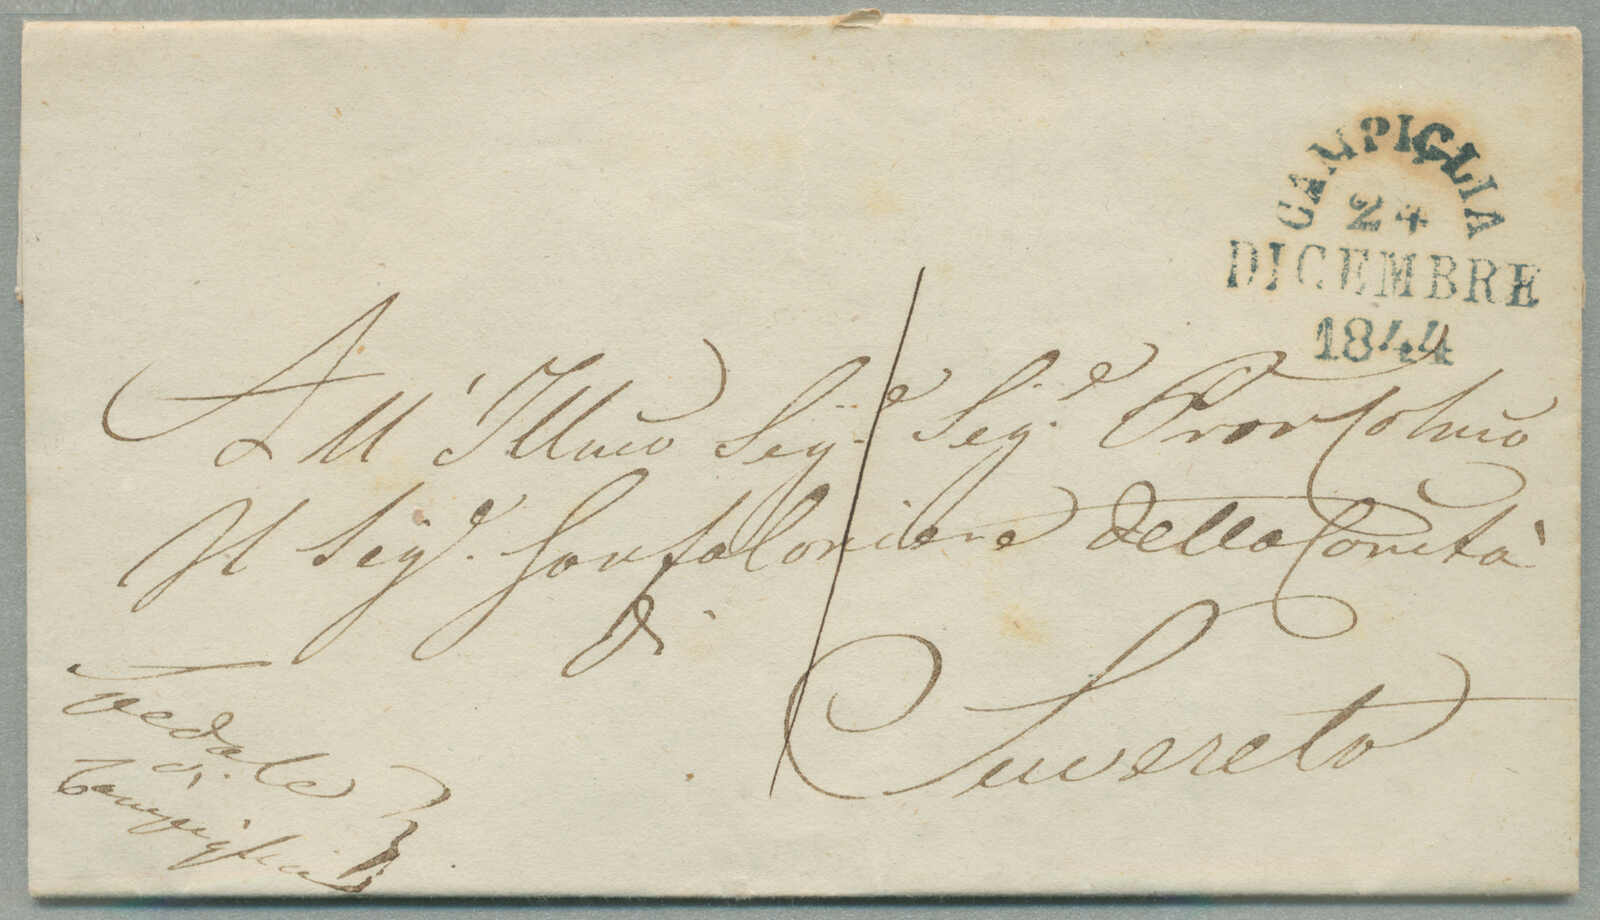 CAMPIGLIA
24
DICEMBRE
1844
All' Illmo Sig.e Sig.e Pron Colmo
Il Sig.e Gonfaloniere della Comtà
di
Suvereto
Spedale
di
Campiglia